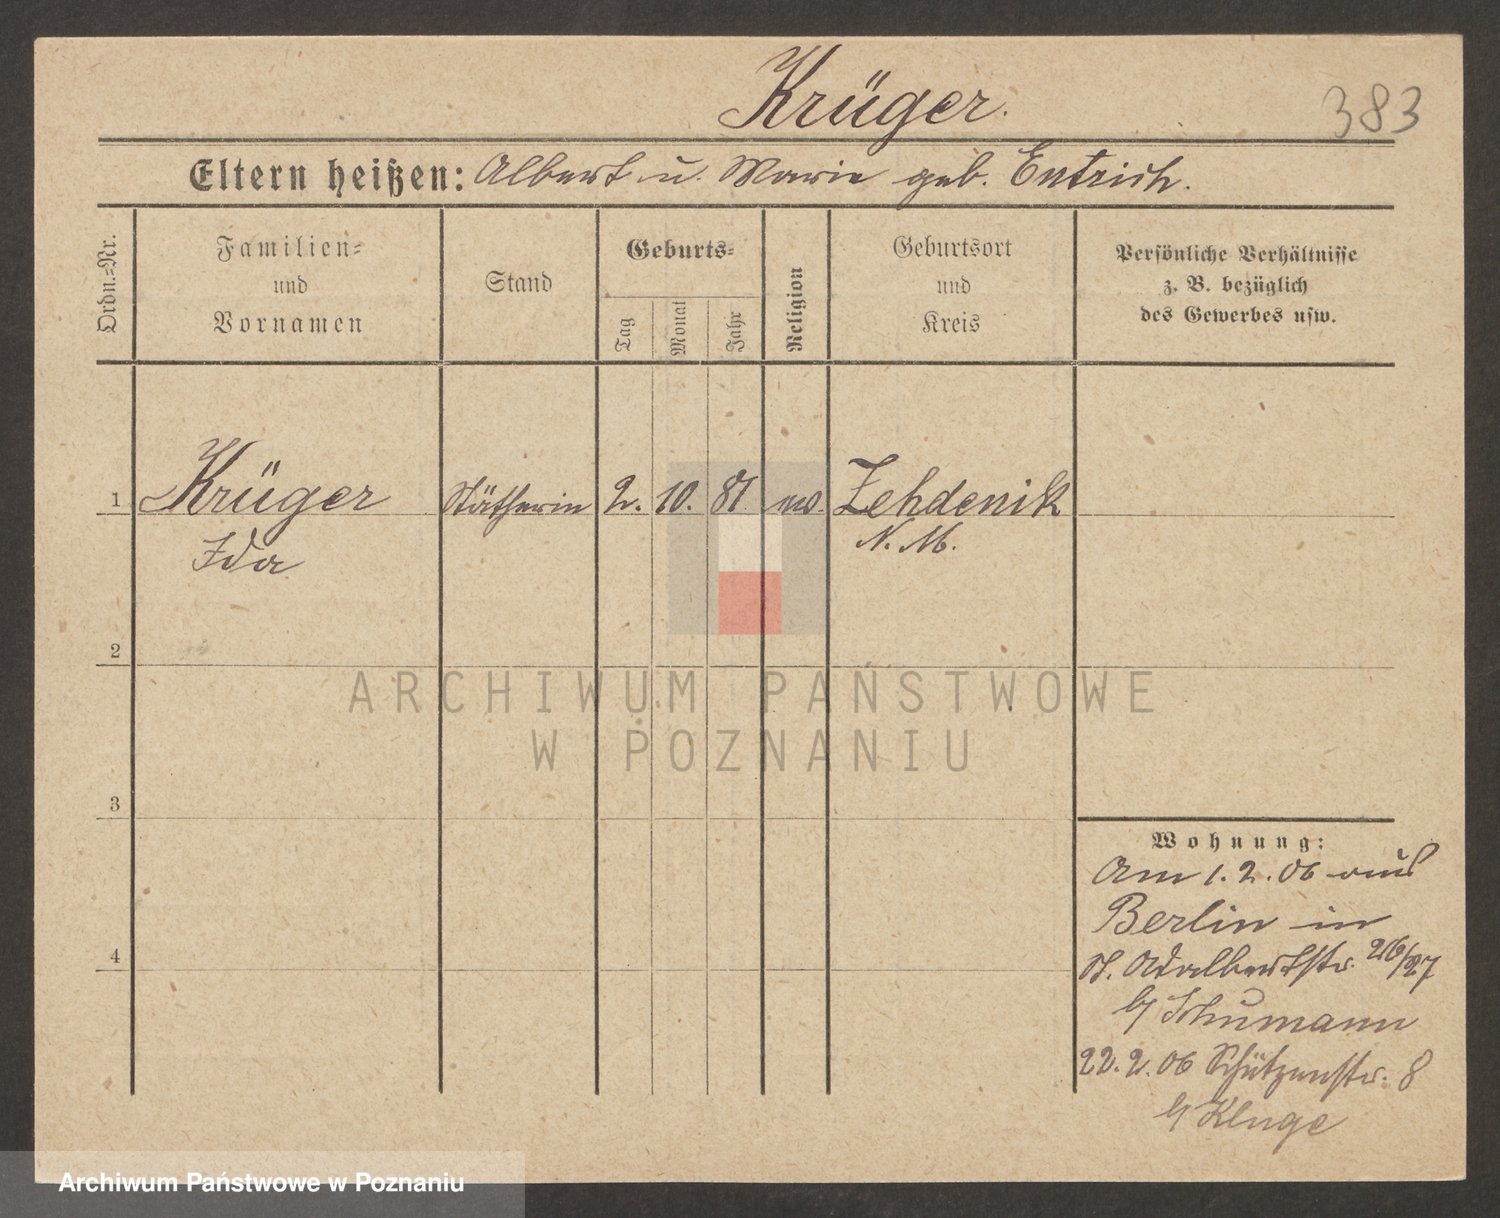 Krüger.
383
Eltern heißen: Albert u. Marie geb. Entrich.
Ordn.=Nr.
Familien=
und
Vornamen
Stand
Geburts=
Tag
Monat
Jahr
Religion
Geburtsort
und
Kreis
Persönliche Verhältnisse
z. B. bezüglich
des Gewerbes usw.
1 Krüger 2. 10. 81. Zehdenik
Ida N. M.
2
3
4
Wohnung:
Am 1. 2. 06 aus
Berlin in
St. Adalbertstr. 26/27
b/ Schumann
22. 2. 06 Schützenstr. 8
b/ Kluge
ARCHIWUM PAŃSTWOWE
W POZNANIU
Archiwum Państwowe w Poznaniu